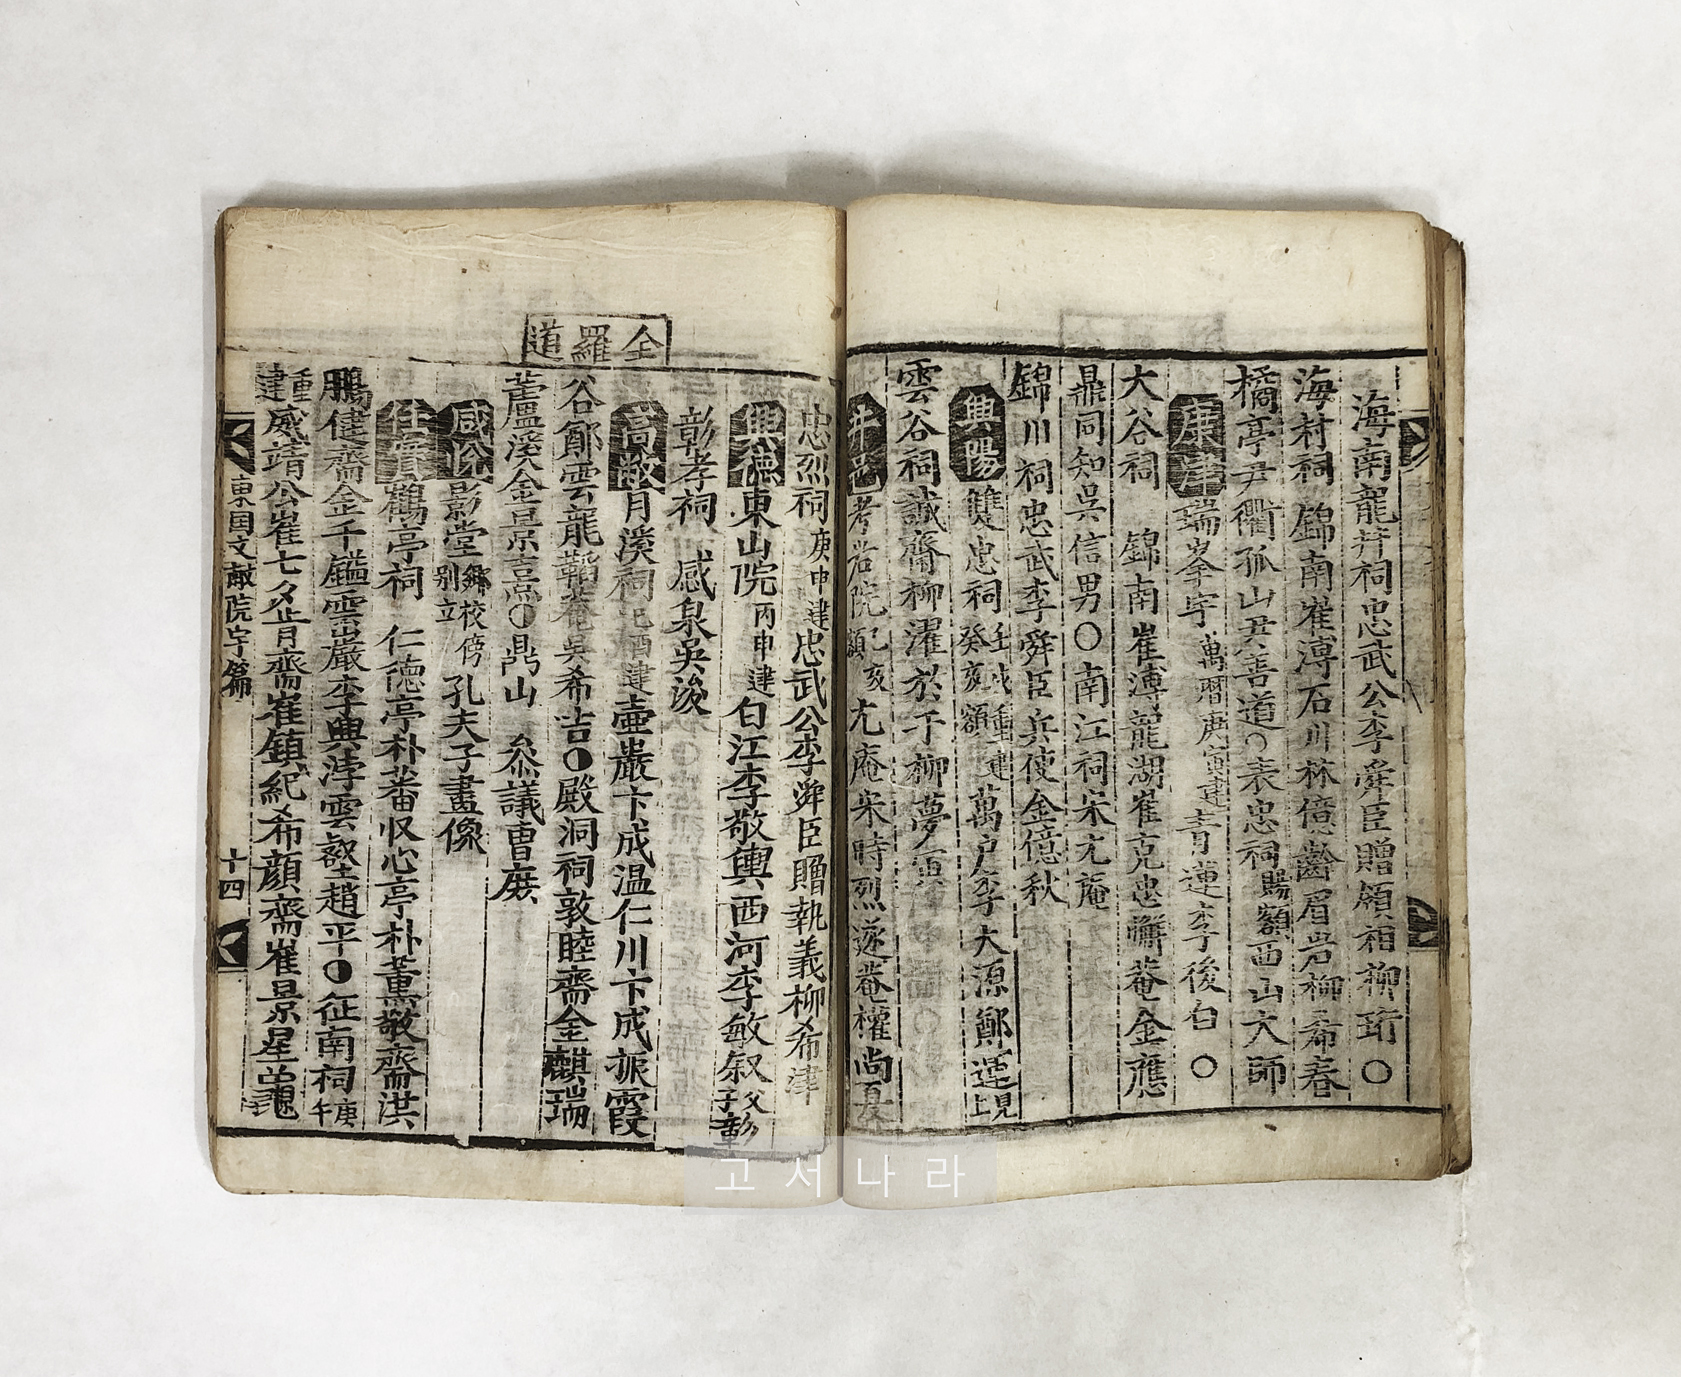 海南龍井祠忠武公李舜臣贈領相柳珩〇
海村祠 錦南崔溥石川林億齡眉岩柳希春
橘亭尹衢孤山尹善道〇表忠祠賜額西山大師
康津瑞峯宇萬曆庚寅建青蓮李後白〇
大谷祠 錦南崔溥龍湖崔克忠 菴金應
鼎同知吳信男〇南江祠宋尤庵
錦川祠忠武李舜臣兵使金億秋
興陽雙忠祠壬戌重建癸亥額萬戶李大源鄭運見上
雲谷祠誠齋柳濯於于柳夢寅
井邑考岩院己亥額尤庵宋時烈遂菴權尚夏
全羅道
忠烈祠庚申建忠武公李舜臣贈執義柳希津
興德東山院丙申建白江李敬輿西河李敏叙父子彰
彰孝祠 感泉吳浚
高敞月溪祠己酉建壺巖卞成温仁川卞成振霞
谷鄭雲龍韜菴吳希吉〇殿洞祠敦睦齋金麒瑞
蘆溪金景憙〇鼎山 叅議曹 
咸悅影堂鄉校傍別立孔夫子畫像
任實鶴亭祠 仁德亭朴蕃收心亭朴薰敬齋洪
鵬健齋金千鎰雲巖李興浡雲壑趙平〇征南祠庚午
重建威靖公崔七夕止齋崔鎮紀希顏齋崔景星 
東国文献院宇篇
十四
고서나라